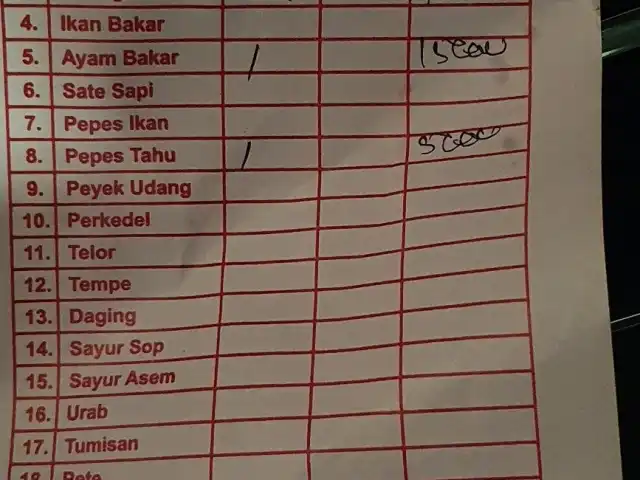 4. Ikan Bakar
5. Ayam Bakar / 15000
6. Sate Sapi
7. Pepes Ikan
8. Pepes Tahu / 5000
9. Peyek Udang
10. Perkedel
11. Telor
12. Tempe
13. Daging
14. Sayur Sop
15. Sayur Asem
16. Urab
17. Tumisan
18. Pete